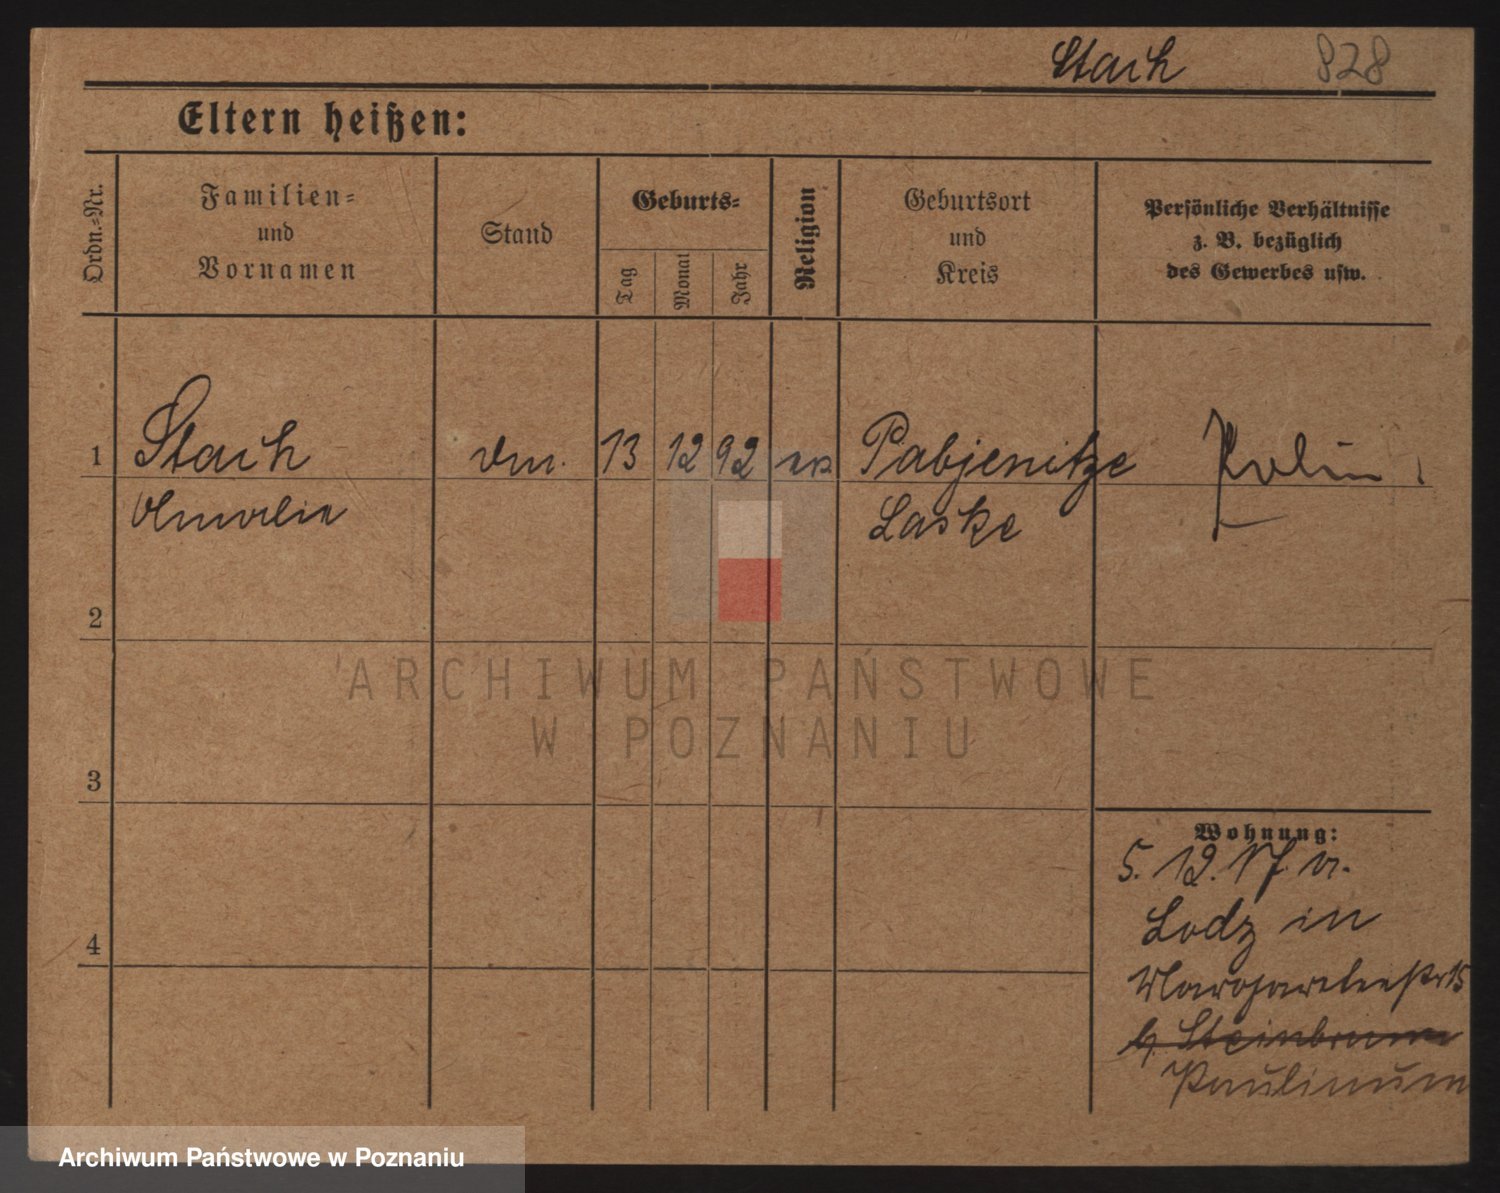 Stach 828
Eltern heißen:
Ordn.=Nr.
Familien=
und
Vornamen
Stand
Geburts=
Tag
Monat
Jahr
Religion
Geburtsort
und
Kreis
Persönliche Verhältnisse
z. B. bezüglich
des Gewerbes usw.
1 Stach 13 12 92 Pabjenitze
Amalie Laske
2
3
4
ARCHIWUM PAŃSTWOWE
W POZNANIU
Wohnung:
5. 12. 17 v.
Lodz in
Margaretenstr 15
b. Steinbrunn
Paulinum
Archiwum Państwowe w Poznaniu